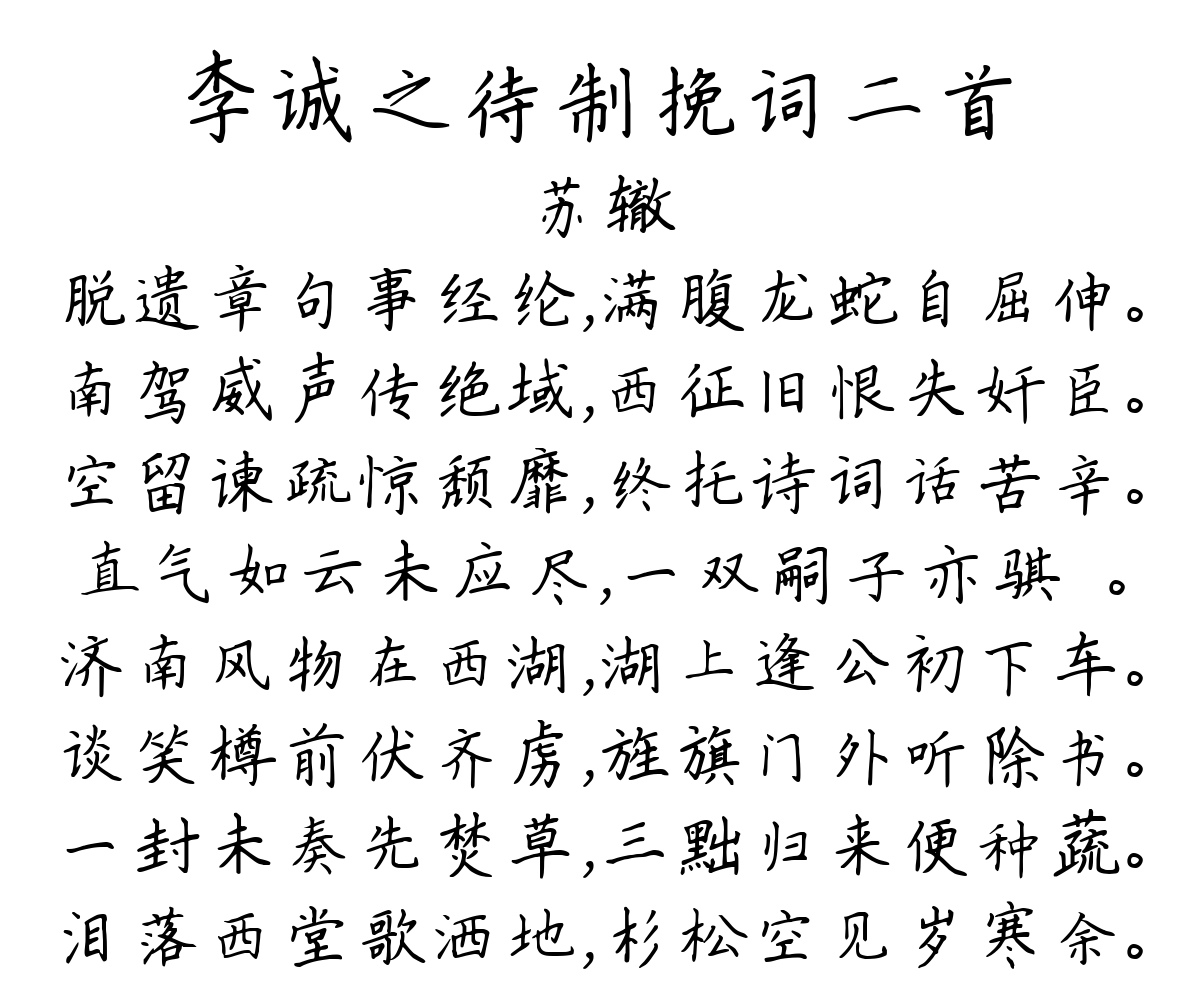 李诚之待制挽词二首
苏辙
脱遗章句事经纶,满腹龙蛇自屈伸。
南驾威声传绝域,西征旧恨失奸臣。
空留谏疏惊颓靡,终托诗词话苦辛。
直气如云未应尽,一双嗣子亦骐 。
济南风物在西湖,湖上逢公初下车。
谈笑樽前伏齐虏,旌旗门外听除书。
一封未奏先焚草,三黜归来便种蔬。
泪落西堂歌洒地,杉松空见岁寒余。